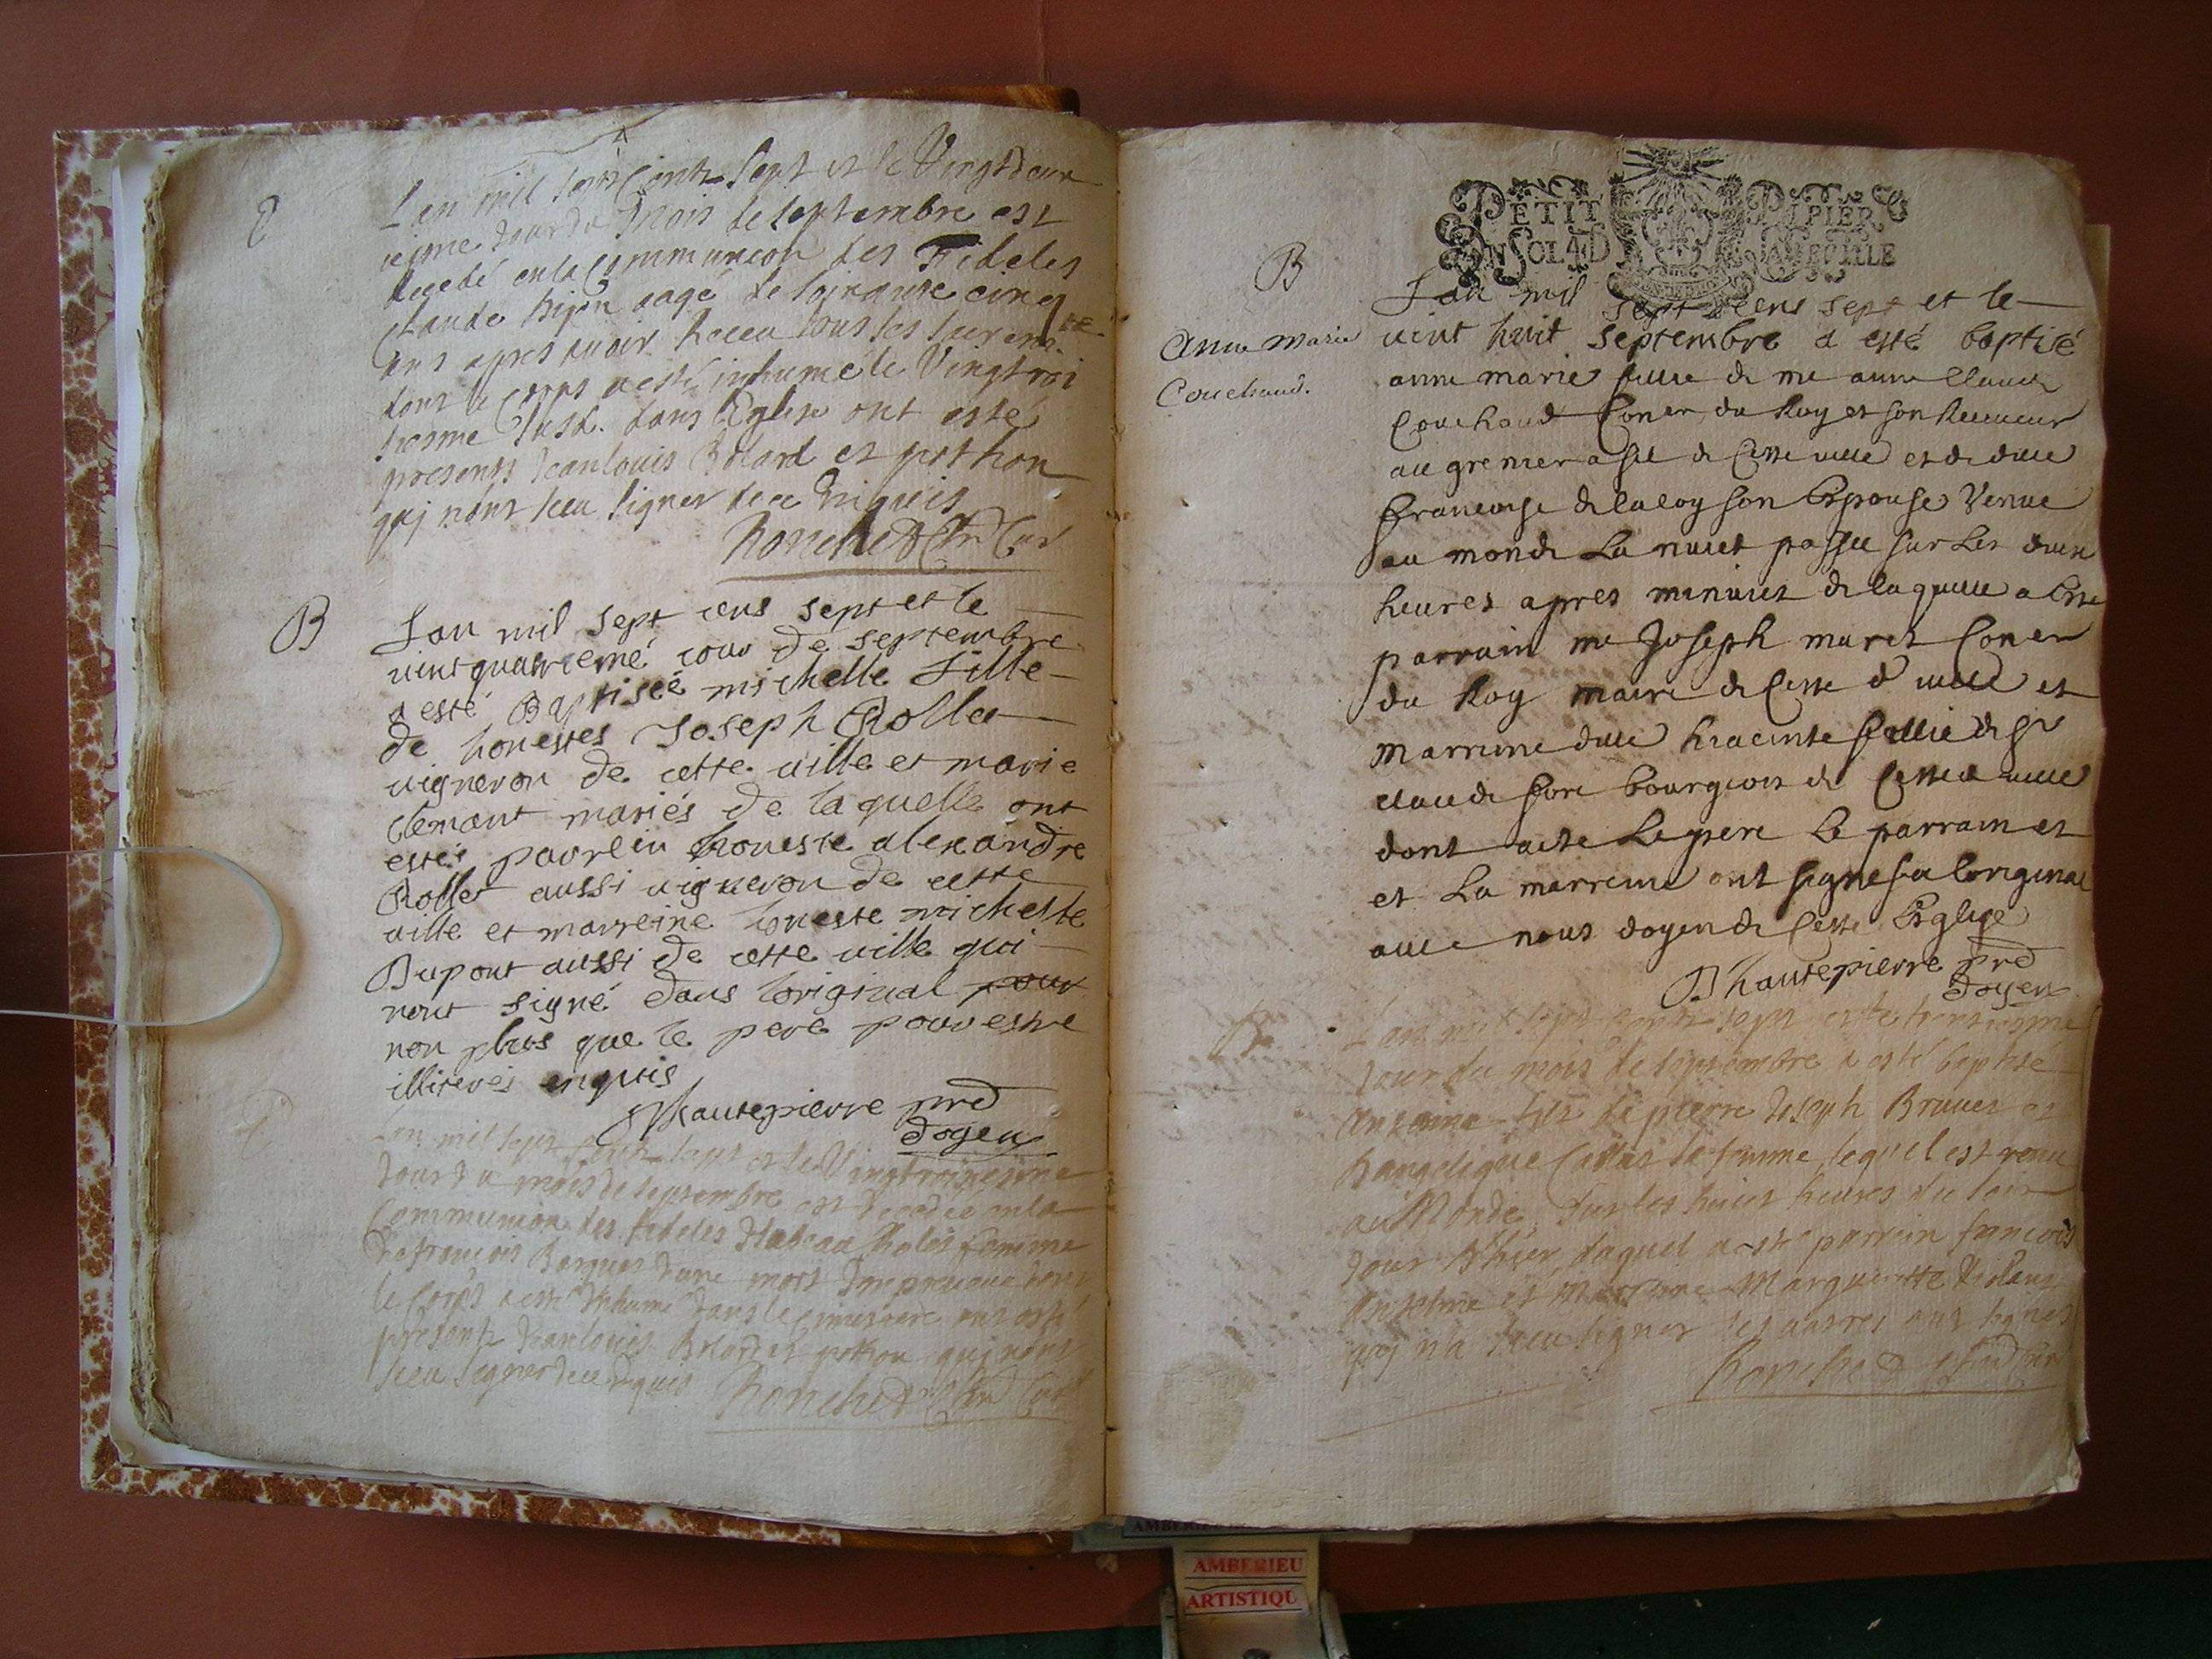 L'an mil sept Cents Sept et le Vingt deux
iesme Jour du Mois de septembre est
decedé en la Communion des Fideles
Claude aagé de soixante cinq
ans apres avoir Receu tous les sacrem.
dont le Corps a esté inhumé le Vingt troi
siesme dans l'Eglise ont esté
presents Jean louis et pothon
quj n'ont sceu signer de ce Enquis
Ronchet
B
L'an mil sept cens sept et le
vint quatriemé jour de septembre
a esté Baptiseé michelle fille
de honestes Joseph Rollet
vigneron de cette ville et marie
clemant mariés de laquelle ont
estés parrein honeste alexandre
Rollet aussi vigneron de cette
ville et marreine honeste michelle
Dupont aussi de cette ville qui
n'ont signé dans l'original pour
non plus que le pere pour estre
illiterés enquis
Dhautepierre prê
doyen
L'an mil sept Cents sept et le Vingt troisiesme
Jour du mois de septembre est decedée en la
Communion des fideles femme
de françois d'une mort
le Corps a esté Inhumé dans le cimetiere ont esté
presents Jean louis et pothon quj n'ont
sceu signer de ce enquis Ronchet
PETIT PAPIER
UN SOL 4 D LA FEUILLE
B
Anne Marie
Couchaud.
L'an mil sept cens sept et le
vint huit septembre a esté baptisé
anne marie fille de me anne Claude
Couchaud Coner du Roy et son Receveur
au grenier a sel de Cette ville et de dlle
francoise de laloy son Espouse Venue
au monde La nuict passée sur Les deux
heures apres minuict de laquelle a Este
parrain me Joseph maret Coner
du Roy maire de Cette d ville et
marreine dlle hiacinte fillie de Sr
claude bourgeois de Cette d ville
dont acte Le pere Le parrain et
et La marreine ont signe sur Loriginal
avec nous doyen de Cette Eglise
Dhautepierre prê
doyen
B
L'an mil sept cents sept et le trentiesme
Jour du mois de septembre a esté baptisé
Antoine fils de pierre Joseph Brunet et
d'angelique sa femme, lequel est venu
au Monde, sur les huict heures du soir
Jour d'hier, duquel a esté parrein francois
Anselme et Marreine Margueritte
quj n'a sceu signer les autres ont signés
Ronchet
AMBERIEU
ARTISTIQU